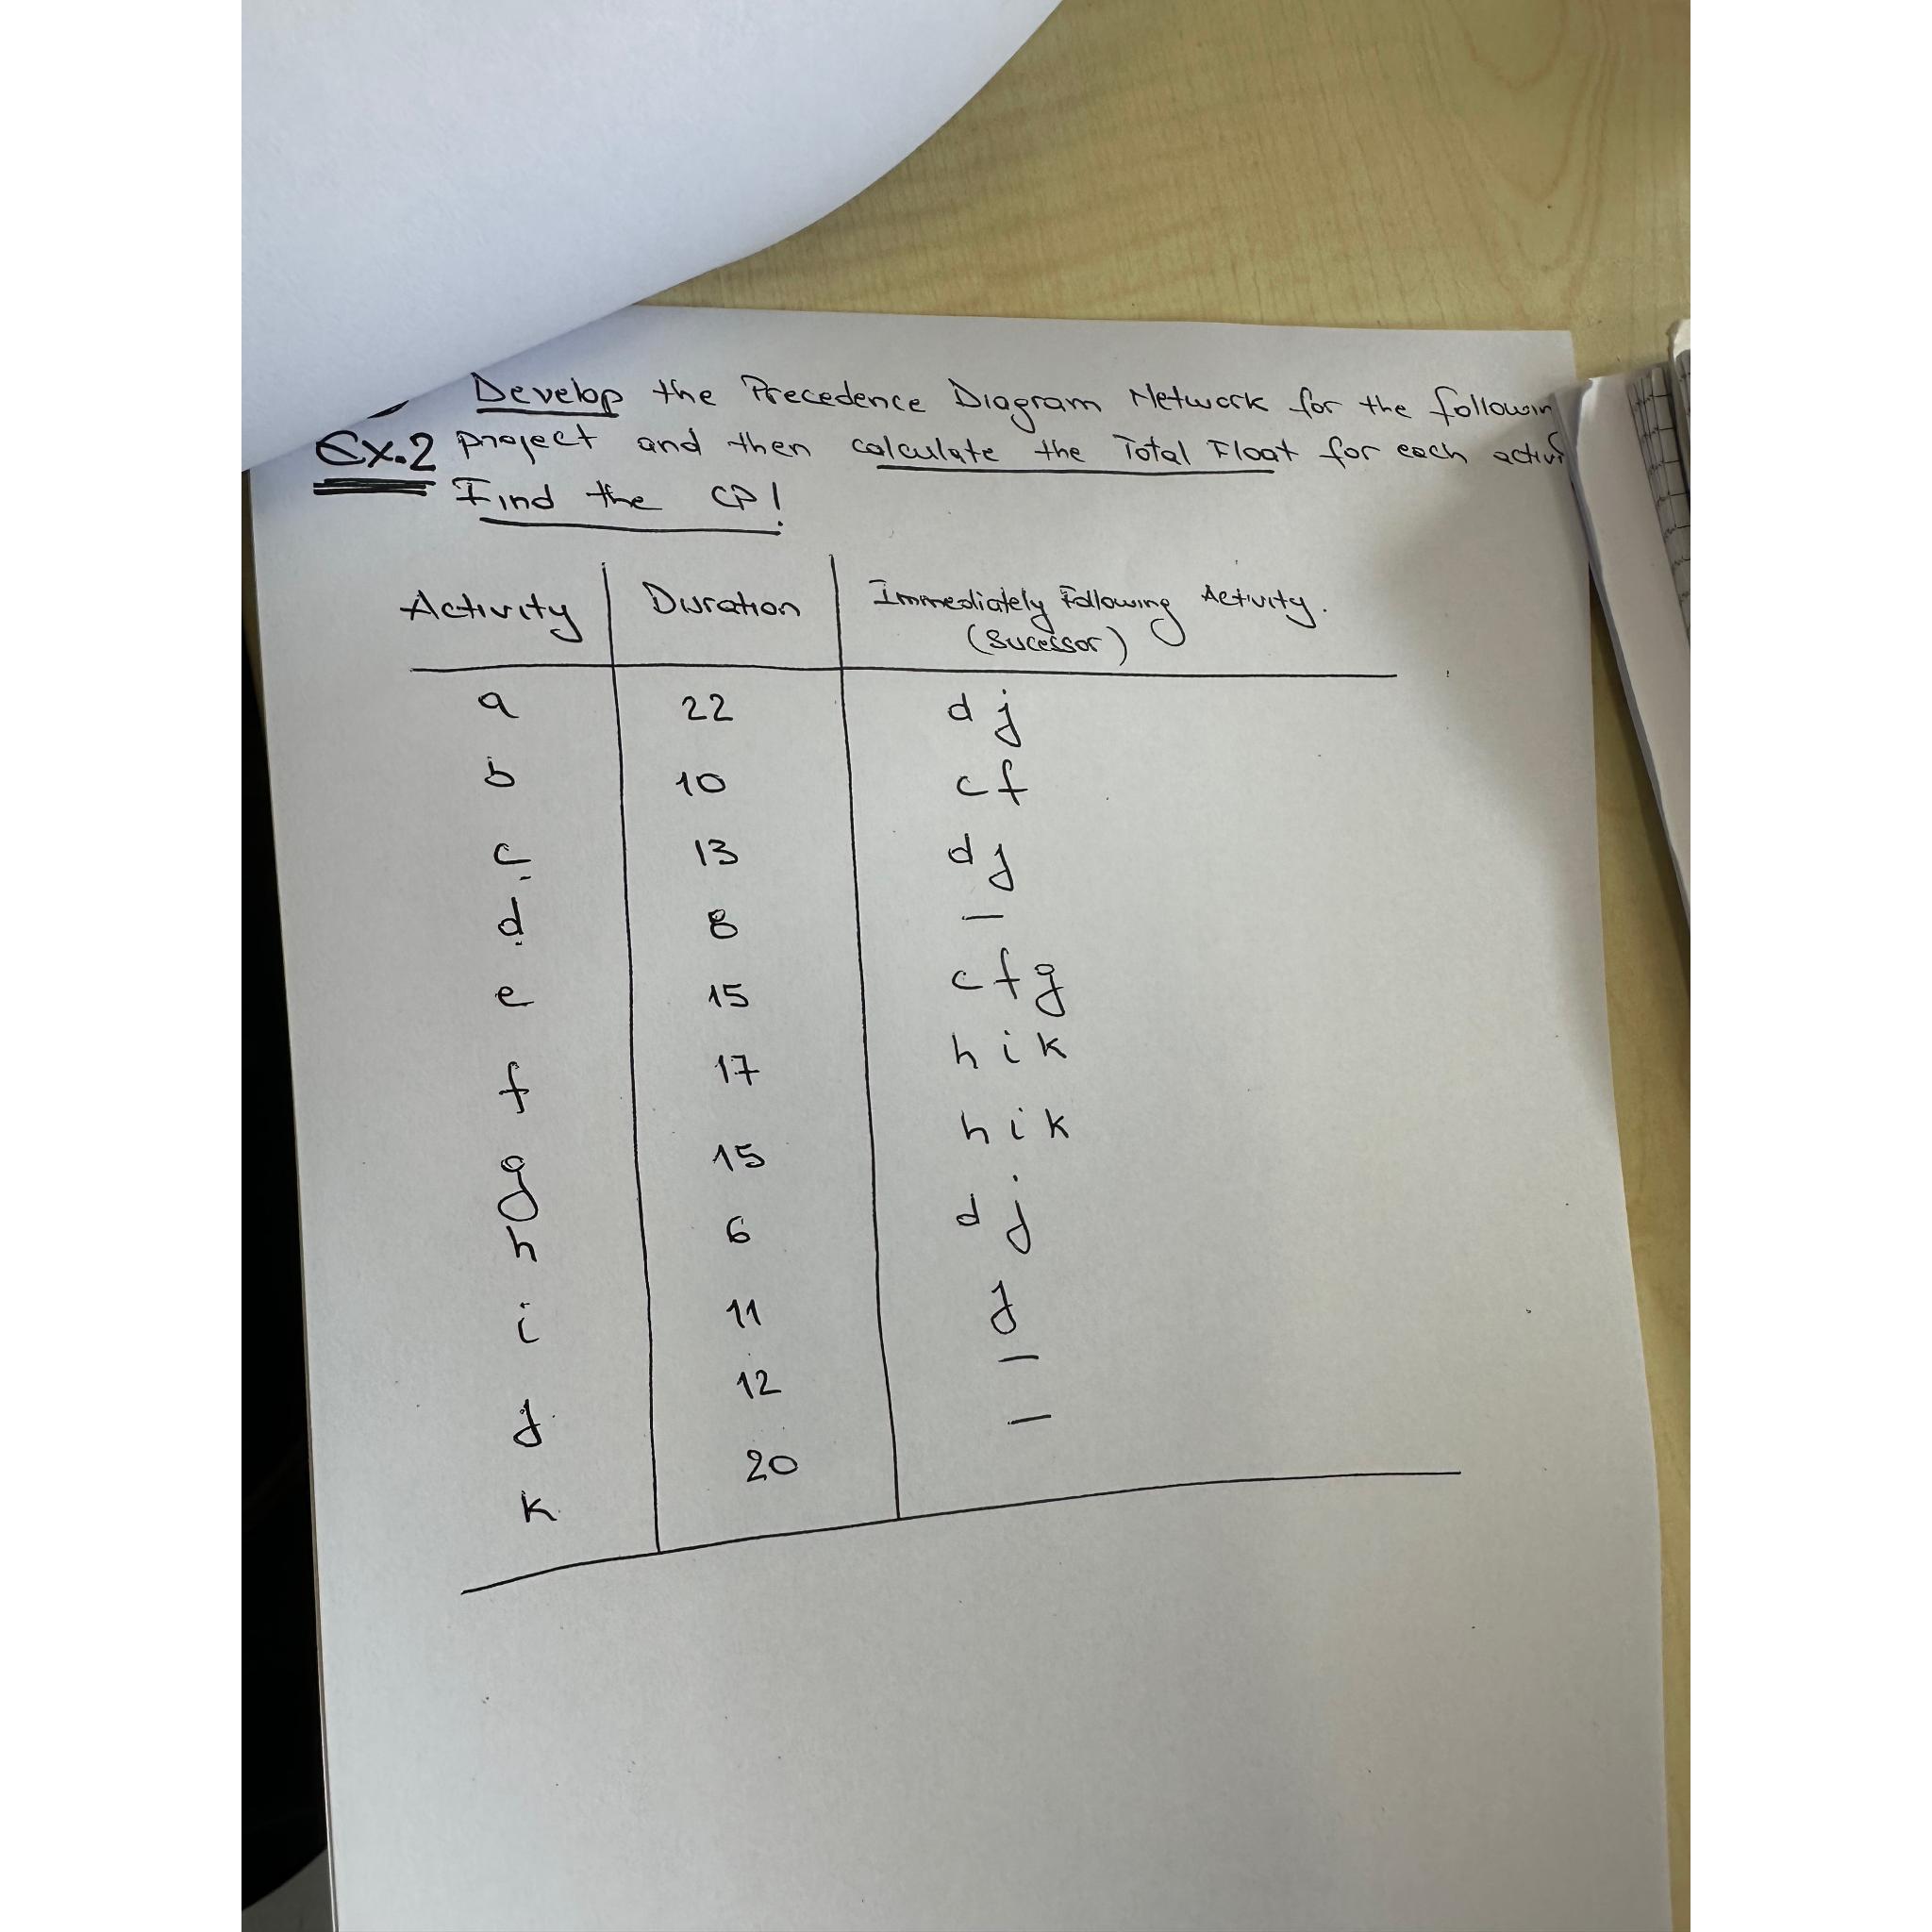 Develop the Precedence Diagram Network for the followin
Ex.2 project and then calculate the Total Float for each activi
Find the CP!
Activity Duration Immediately Following Activity.
(Sucessor)
a 22 d j
b 10 c f
c 13 d j
d 8 –
e 15 c f g
f 17 h i k
g 15 h i k
h 6 d j
i 11 j
j 12 –
k 20 –